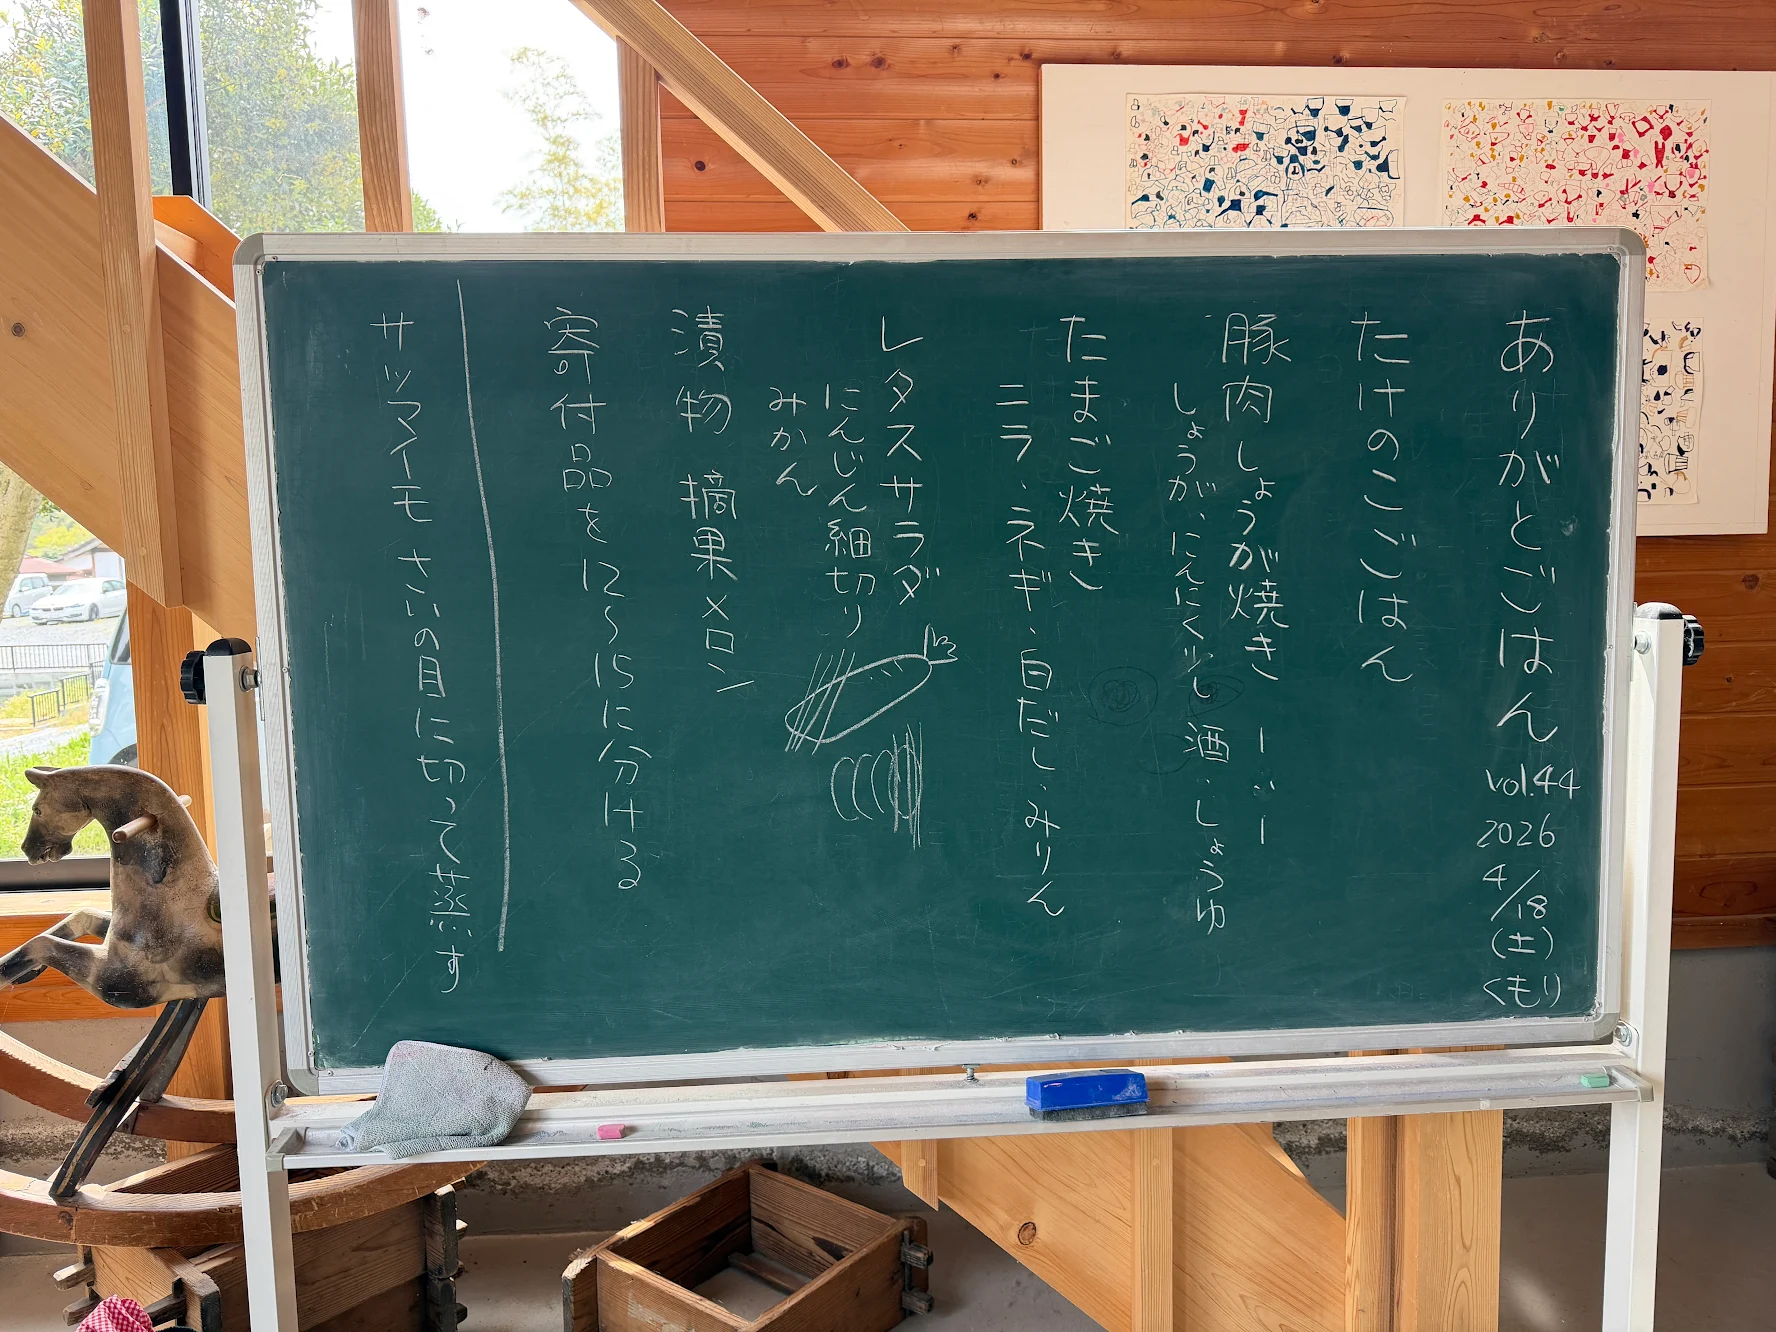 ありがとごはん vol.44 2026 4/18 (土) くもり
たけのこごはん
豚肉しょうが焼き
しょうが、にんにく少し 酒、しょうゆ
たまご焼き
ニラ、ネギ、白だし、みりん
レタスサラダ
にんじん細切り
みかん
漬物 摘果メロン
寄付品を12〜15に分ける
サツマイモ さいの目に切って蒸す